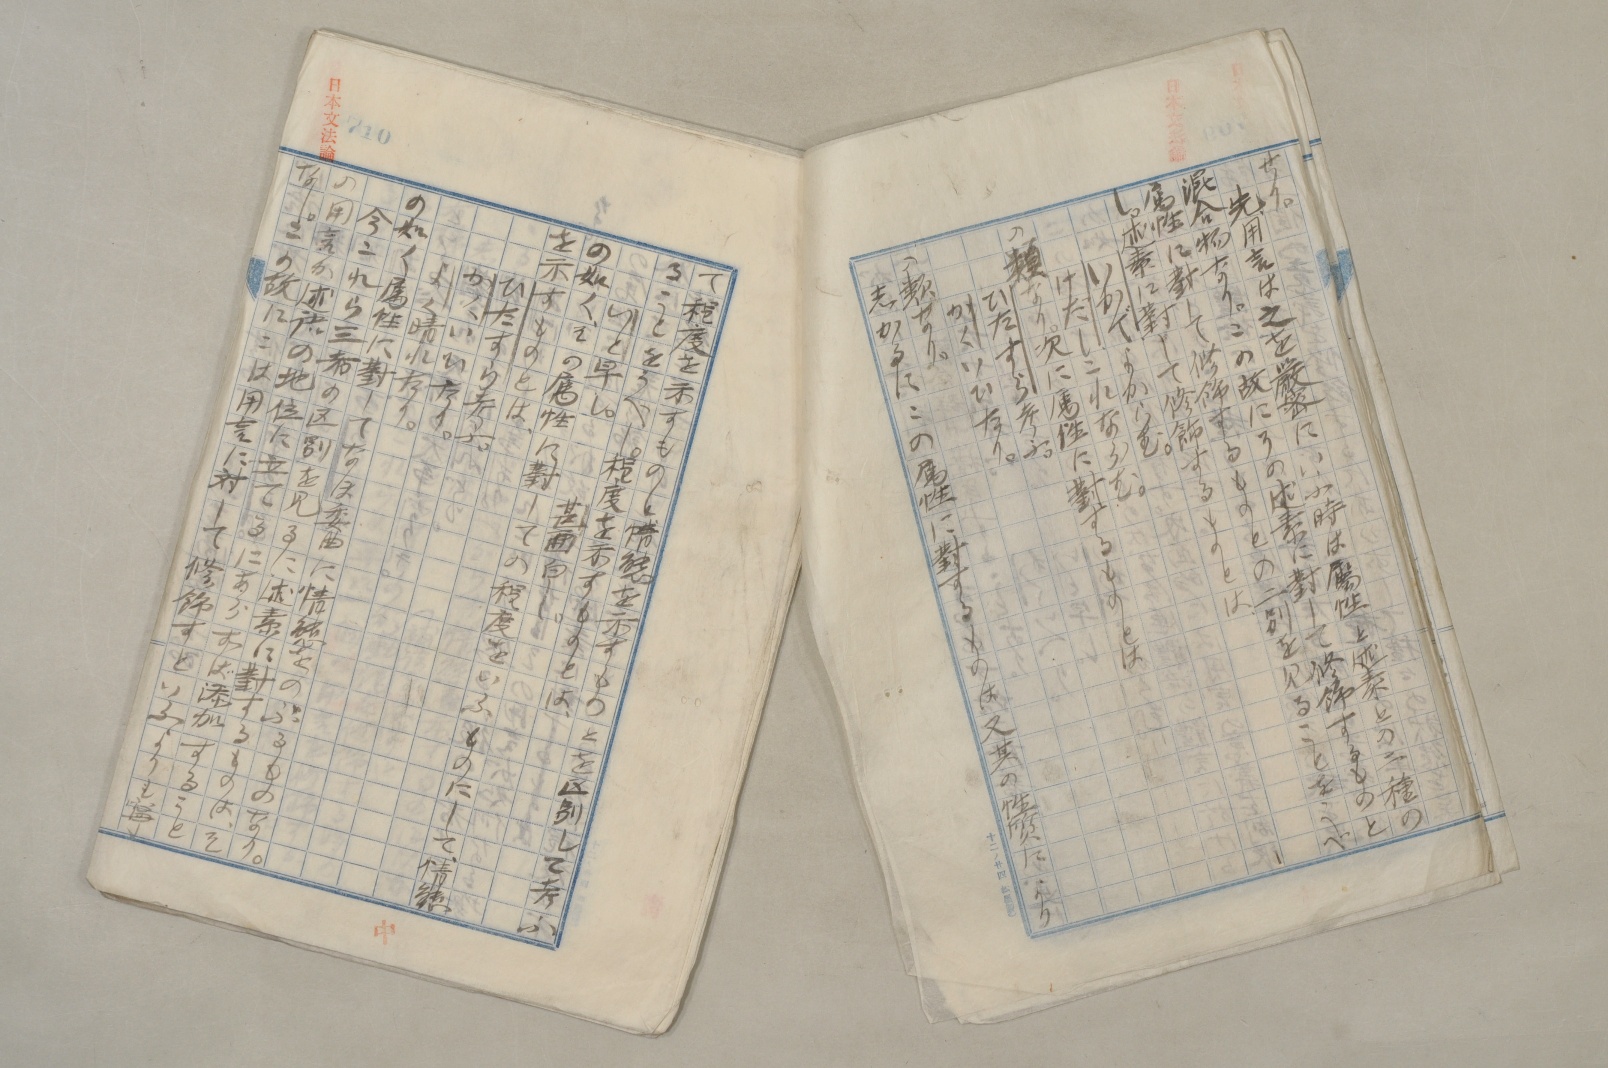 せり。
先用言は之を嚴密にいふ時は屬性と述素との二種の
混合物なり。この故にその述素に對して修飾するものと
屬性に對して修飾するものとの二別を見ることをうべ
し。述素に對して修飾するものとは
いかでよからむ。
けだしこれならむ。
の類なり。次に屬性に對するものとは
ひたすら考ふ。
かくいひたり。
の類なり。
志かるにこの屬性に對するものは又其の性質により
て程度を示すものと情態を示すものとを區別して考ふ
ることをうべし。程度を示すものとは、
いと早し。 甚面白し。
の如く、その屬性に對しての程度をいふものにして、情態
を示すものとは、
ひたすら考ふ。
かくいひたり。
よく晴れたり。
の如く屬性に對してなほ委曲に情態をのぶるものなり。
今これら三者の区別を見るに述素に對するものは、そ
の用言が述語の地位に立てるにあらずば添加すること
なし。この故にこは用言に対して修飾すといふよりも寧
日本文法論
日本文法論
710
中